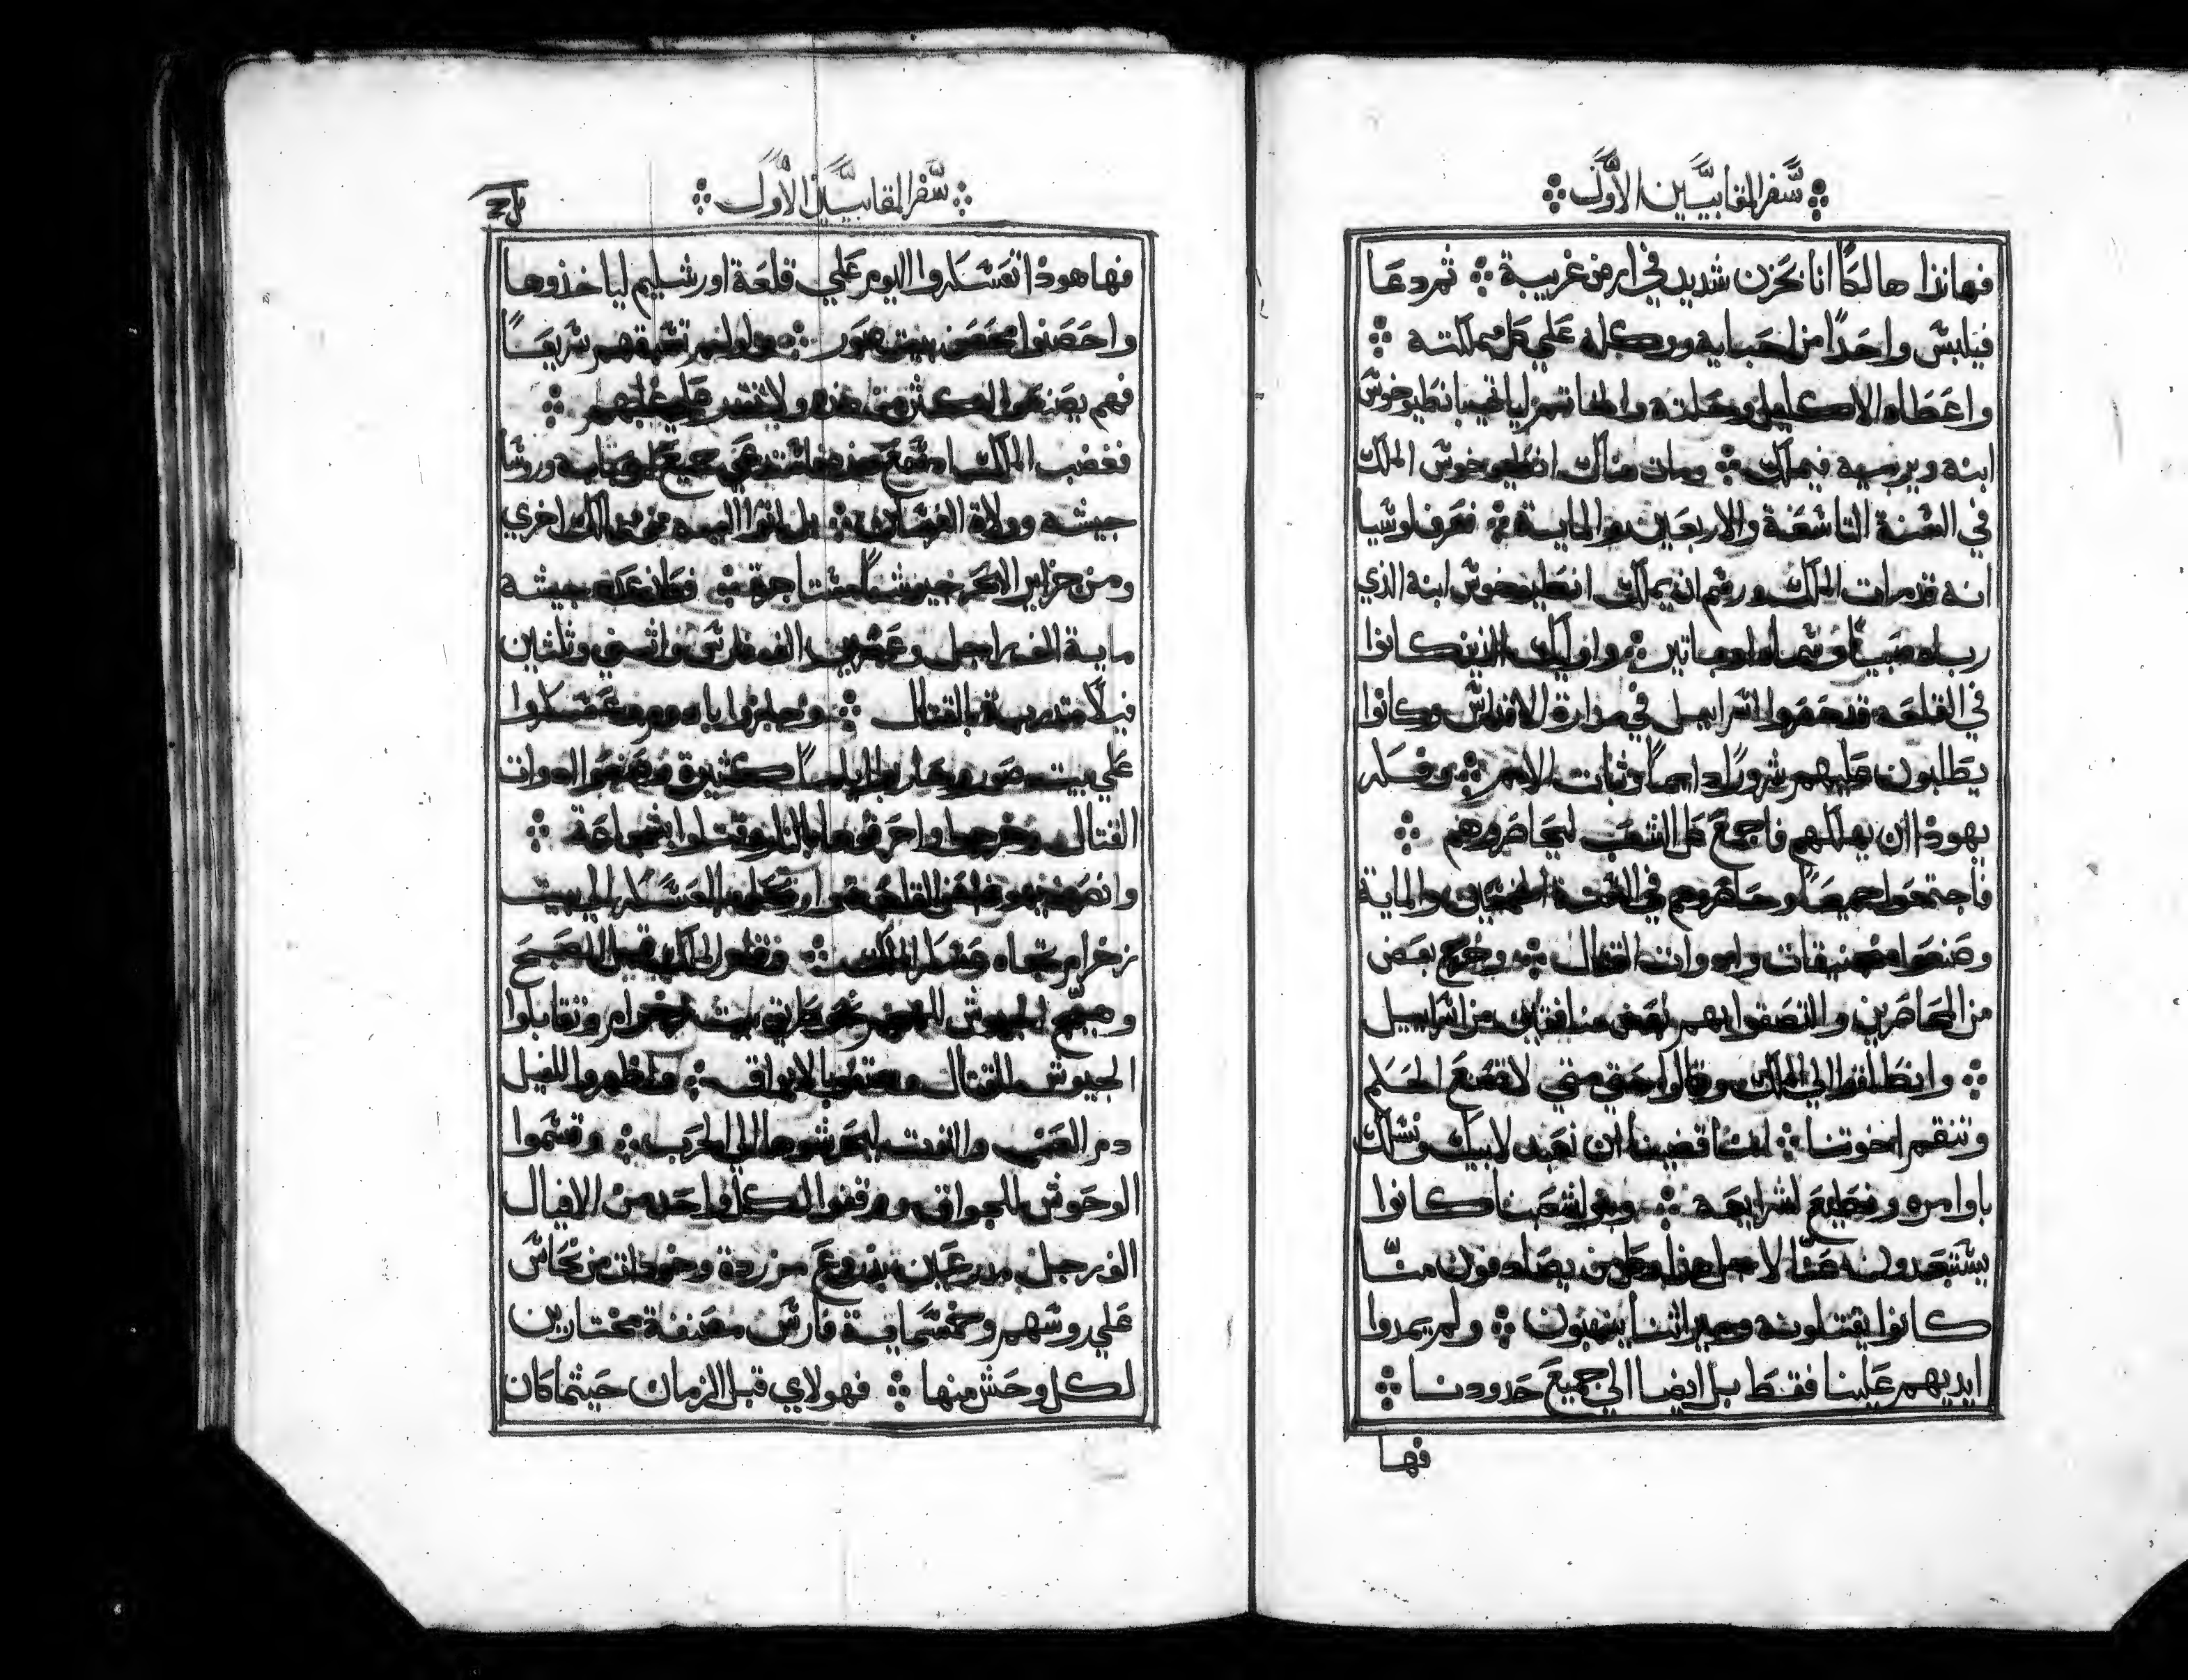 سفر المقابيين الاول
فهانذا هالكًا انا بحزن شديد في ارض غريبة ثم دعا
فيلبس واحدًا من احبايه ووكله علي كل مملكته
واعطاه الاكليل وحلته والخاتم لياتي بانطيوخوس
ابنه ويربيه فيملك ومات هناك انطيوخوس الملك
في السنة التاسعة والاربعين والماية فعرف لوسيا
انه قد مات الملك ورسم ان يملك انطيوخوس ابنه الذي
رباه صبيًا وسماه اوباتير واوليك الذين كانوا
في القلعه قد حصروا اسراييل في مدارة الاقداس وكانوا
يطلبون عليهم شرورًا دايمًا وثبات الامم وفكر
يهوذا ان يهلكهم فاجمع كل الشعب ليحاصروهم
فاجتمعوا جميعًا وحاصروهم في السنة الخمسين والماية
وصنعوا منجنيقات وادوات القتال وخرج بعض
من المحاصرين والتصقوا بهم بعض منافقين من اسراييل
وانطلقوا الي الملك وقالوا حتي متي لا تصنع الحكم
وتنقم اخوتنا اننا قضينا ان نعبد لابيك ونسلك
باوامره ونطيع لشرايعه وبنوا شعبنا كانوا
يستبعدون منا لاجل هذا وكل من يصادفون منا
كانوا يقتلونه وميراثنا ينهبون ولم يمدوا
ايديهم علينا فقط بل ايضا الي جميع حدودنا
فها
سفر المقابيين الاول
فها هوذا تعسكروا اليوم علي قلعة اورشليم لياخذوها
واحصنوا محصن بيت صور ولو لم تسبقهم سريعًا
فهم يصنعوا اكثر من هذه ولا تقدر علي غلبهم
فغضب الملك اذ سمع هذا فاستدعي جميع احبابه وروسا
جيشه وولاة الفرسان بل اتوا اليه من ممالك اخري
ومن جزاير البحر جيوشًا مستاجرة فكان عدد جيشه
ماية الف راجل وعشرين الف فارس واثنين وثلثين
فيلًا متدربة بالقتال وجازوا باد ووم وعسكروا
علي بيت صور وحاربوا ايامًا كثيرة وصنعوا ادوات
القتال وخرجوا واحرقوها بالنار وقتلوا بشجاعة
وانصرف يهوذا من القلعة وارتحل بالعسكر الي بيت
زخرام تجاه عسكر الملك فقام الملك قبل الصبح
وهيج الجيوش الي نحو طريق بيت زخرام وتقابلوا
الجيوش للقتال وهتفوا بالابواق واظهروا للفيل
دم العنب والتوت ليحرشوها الي الحرب وقسموا
الوحوش للجواق ووقفوا لكل واحد من الافيال
الف رجل مدرعين بدروع مزردة وخودات من نحاس
علي روسهم وخمسماية فارس مصنفة مختارين
لكل وحش منها فهولاي قبل الزمان حيثما كان